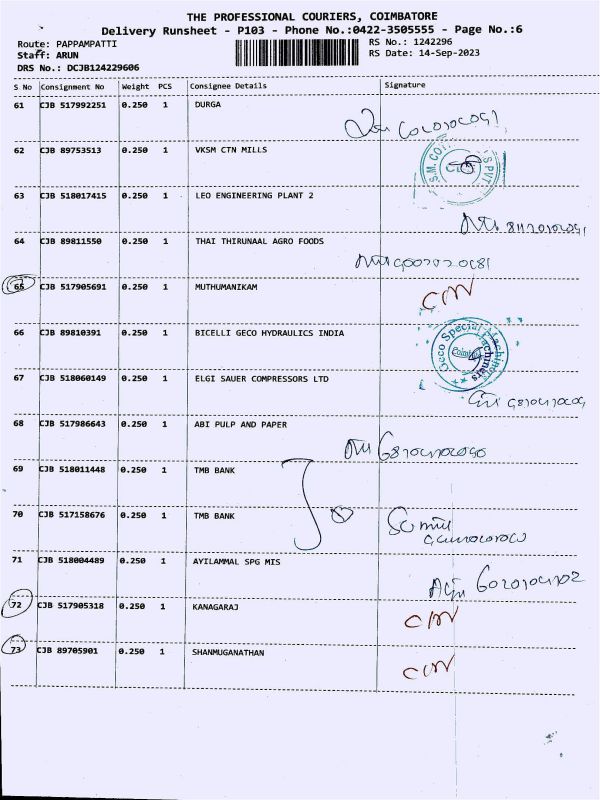 THE PROFESSIONAL COURIERS, COIMBATORE
Delivery Runsheet - P103 - Phone No.:0422-3505555 - Page No.:6
Route: PAPPAMPATTI RS No.: 1242296
Staff: ARUN RS Date: 14-Sep-2023
DRS No.: DCJB124229606
S No Consignment No Weight PCS Consignee Details Signature
61 CJB 517992251 0.250 1 DURGA
62 CJB 89753513 0.250 1 VKSM CTN MILLS
63 CJB 518017415 0.250 1 LEO ENGINEERING PLANT 2
64 CJB 89811550 0.250 1 THAI THIRUNAAL AGRO FOODS
65 CJB 517905691 0.250 1 MUTHUMANIKAM
66 CJB 89810391 0.250 1 BICELLI GECO HYDRAULICS INDIA
67 CJB 518060149 0.250 1 ELGI SAUER COMPRESSORS LTD
68 CJB 517986643 0.250 1 ABI PULP AND PAPER
69 CJB 518011448 0.250 1 TMB BANK
70 CJB 517158676 0.250 1 TMB BANK
71 CJB 518004489 0.250 1 AYILAMMAL SPG MIS
72 CJB 517905318 0.250 1 KANAGARAJ
73 CJB 89705901 0.250 1 SHANMUGANATHAN